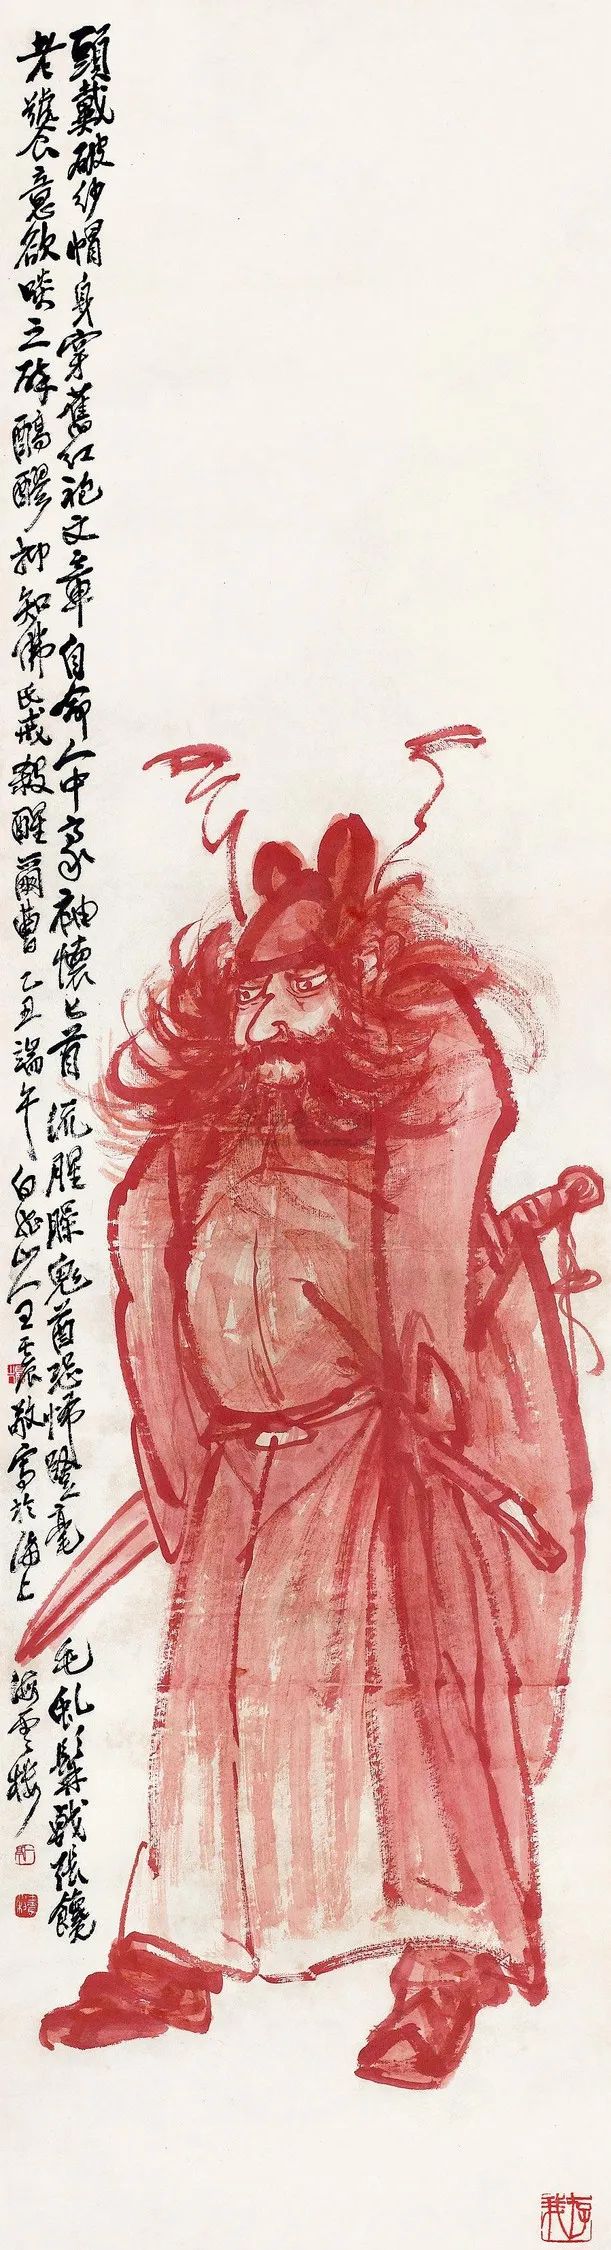 頭戴破紗帽身穿舊紅袍文章自命人中豪袖懷匕首流腥臊鬼酋恐怖豎毫毛虬髯戟張饞
老饕意欲啖之醉酩醪抑知佛氏戒殺醒爾曹乙丑端午白龍山人王震敬寫於海上海雲樓